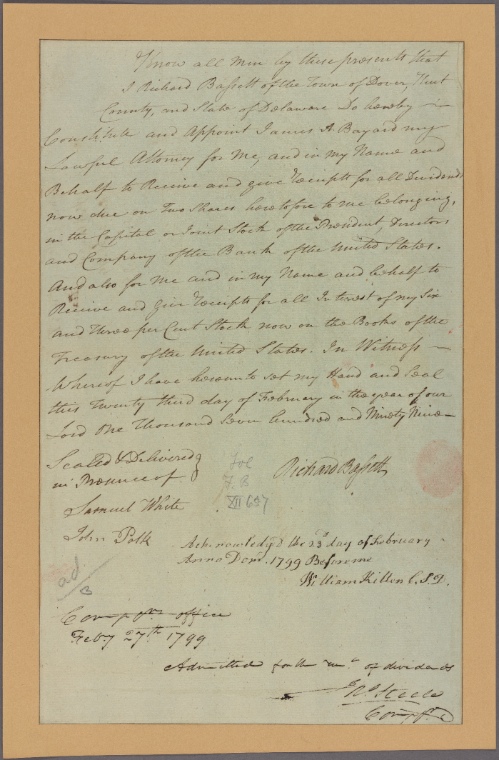 Know all Men by these presents that
I Richard Bassett of the Town of Dover, Kent
County, and State of Delaware Do hereby
Constitute and Appoint James A Bayard my
Lawful Attorney for Me, and in my Name and
Behalf to Receive and give Receipts for all Dividends
now due on Two Shares heretofore to me belonging,
in the Capital or Joint Stock of the President, Directors
and Company of the Bank of the United States.
And also for Me and in my Name and behalf to
Receive and give Receipts for all Interest of my Six
and Three per Cent Stock now on the Books of the
Treasury of the United States. In Witness
Whereof I have hereunto set my Hand and Seal
this Twenty third day of February in the year of our
Lord One Thousand Seven hundred and Ninety Nine
Sealed & Delivered
in Presence of
Richard Bassett
Samuel White
John Polk
Acknowledged the 23d day of February
Anno Dom. 1799 Before me
William Killen C.S.D.
XII 637
ad
3
Comptrs office
Feby 27th 1799
Admitted for the of dividends
Jno Steele
Comptr